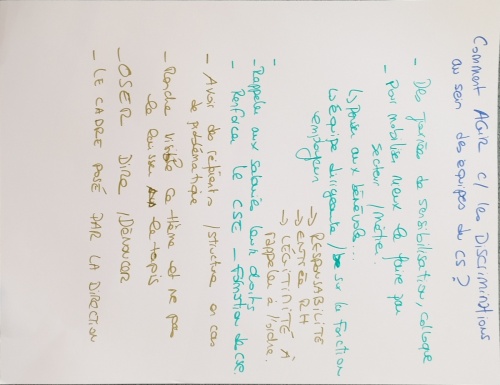 Comment AGIR c/ les Discriminations
au sein des équipes du CS ?
- Des journées de sensibilisation, colloque
- Pour mobiliser mieux le faire par
secteur / métier.
↳ Pour aux bénévoles...
↳ Equipe dirigeante / sur la fonction
employeur
→ RESPONSABILITÉ
→ ENTRÉE RH
→ LÉGITIMITÉ A
rappeler à l'ordre.
-
- Rappeler aux salariés leur droits
- Renforcer le CSE - formation du CSE.
- Avoir des référents / structure en cas
de problématique
- Rendre visible ce thème et ne pas
le laisser le tapis
- OSER DIRE / DÉNONCER
- LE CADRE POSÉ PAR LA DIRECTION